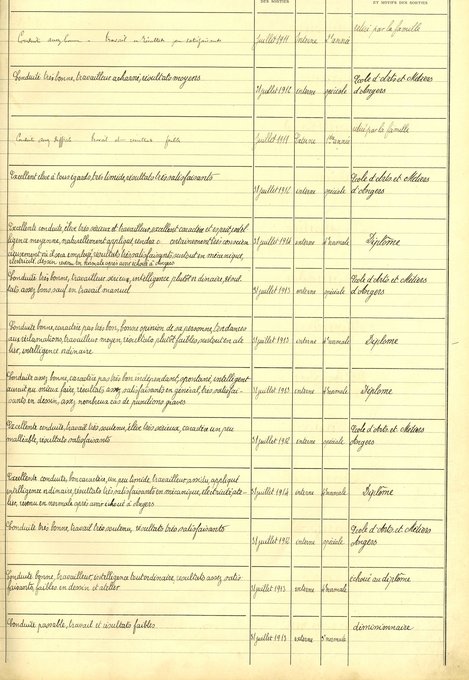 DES SORTIES
ET MOTIFS DES SORTIES
Conduite assez bonne - Travail et résultats peu satisfaisants
juillet 1911 interne 1e année
retiré par la famille
Conduite très bonne, travailleur acharné, résultats moyens
31 juillet 1912 interne spéciale
Ecole d'Arts et Métiers
d'Angers
Conduite assez difficile Travail et résultats faibles
juillet 1911 interne année
retiré par la famille
Excellent élève à tous égards, très timide, résultats très satisfaisants
31 juillet 1912 interne spéciale
Ecole d'Arts et Métiers
d'Angers
Excellente conduite, élève très sérieux et travailleur, excellent caractère et esprit, intel-
ligence moyenne, naturellement appliqué, rendra certainement très
où il sera employé, résultats très satisfaisants, surtout en mécanique,
électricité, dessin, revenu en normale après avoir échoué à Angers
31 juillet 1914 interne 4e normale
Diplôme
Conduite très bonne, travailleur sérieux, intelligence plutôt ordinaire, résul-
tats assez bons, sauf en travail manuel
31 juillet 1913 interne spéciale
Ecole d'Arts et Métiers
d'Angers
Conduite bonne, caractère pas très bon, bonne opinion de sa personne, tendances
aux réclamations, travailleur moyen, résultats plutôt faibles surtout en ate-
lier, intelligence ordinaire
31 juillet 1913 interne 4e normale
Diplôme
Conduite assez bonne, caractère pas très bon, indépendant, spontané, intelligent
aurait pu mieux faire, résultats assez satisfaisants en général, très satisfai-
sants en dessin, assez nombreux cas de punitions graves
31 juillet 1913 interne 4e normale
Diplôme
Excellente conduite, travail très soutenu, élève très sérieux, caractère un peu
malléable, résultats satisfaisants
31 juillet 1912 interne spéciale
Ecole d'Arts et Métiers
Angers
Excellente conduite, bon caractère, un peu timide, travailleur assidu, appliqué
intelligence ordinaire, résultats très satisfaisants en mécanique, électricité, ate-
lier, revenu en normale après avoir échoué à Angers
31 juillet 1914 interne 4e normale
Diplôme
Conduite très bonne, travail très soutenu, résultats très satisfaisants
31 juillet 1912 interne spéciale
Ecole d'Arts et Métiers
Angers
Conduite bonne, travailleur, intelligence tout ordinaire, résultats assez satis-
faisants, faibles en dessin et atelier
31 juillet 1913 interne 4e normale
échoué au diplôme
Conduite passable, travail et résultats faibles
31 juillet 1913 externe 3e normale
démissionnaire